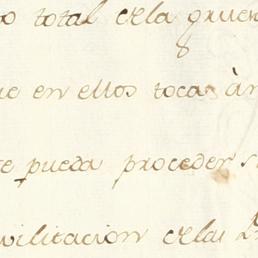 o total de la grue
e en ellos toca à
te pueda proceder s
vilitacion de la